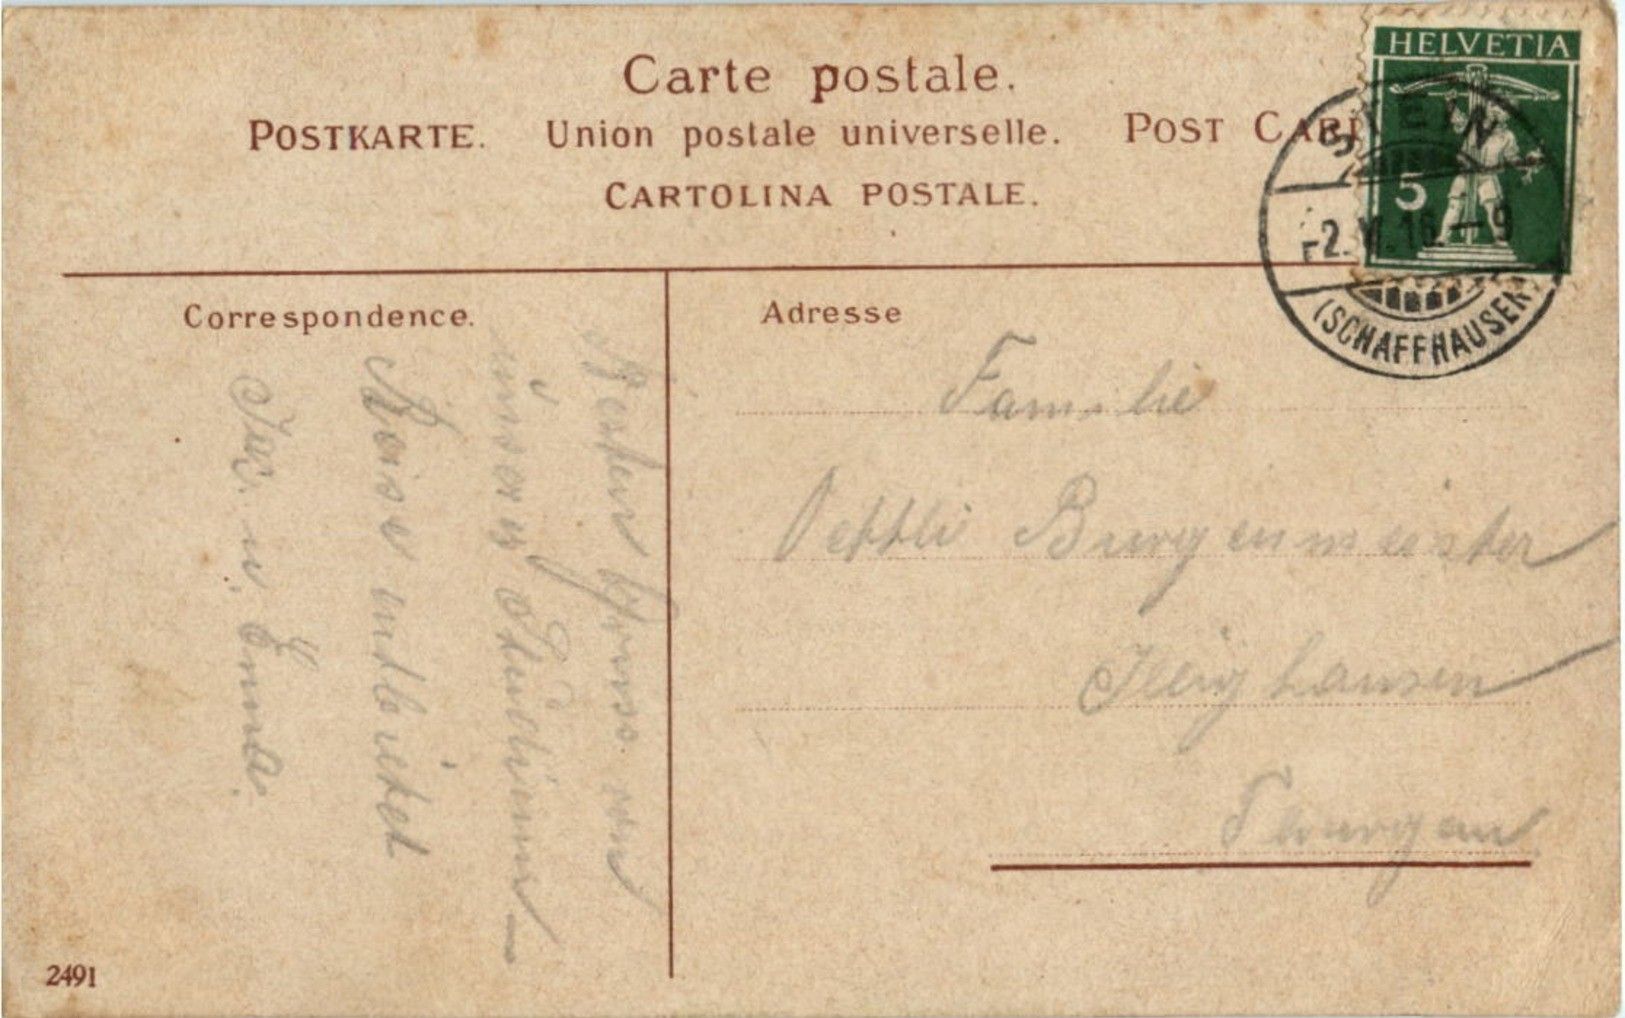 Carte postale.
POSTKARTE. Union postale universelle. POST CARD
CARTOLINA POSTALE.
HELVETIA
5
STEIN
2.VI.16.–9
(SCHAFFHAUSEN)
Correspondence.
Besten von
unserer
Reise
Jac. u. Emma.
Adresse
Familie
Oettli Burgermeister
Illighausen
Thurgau
2491